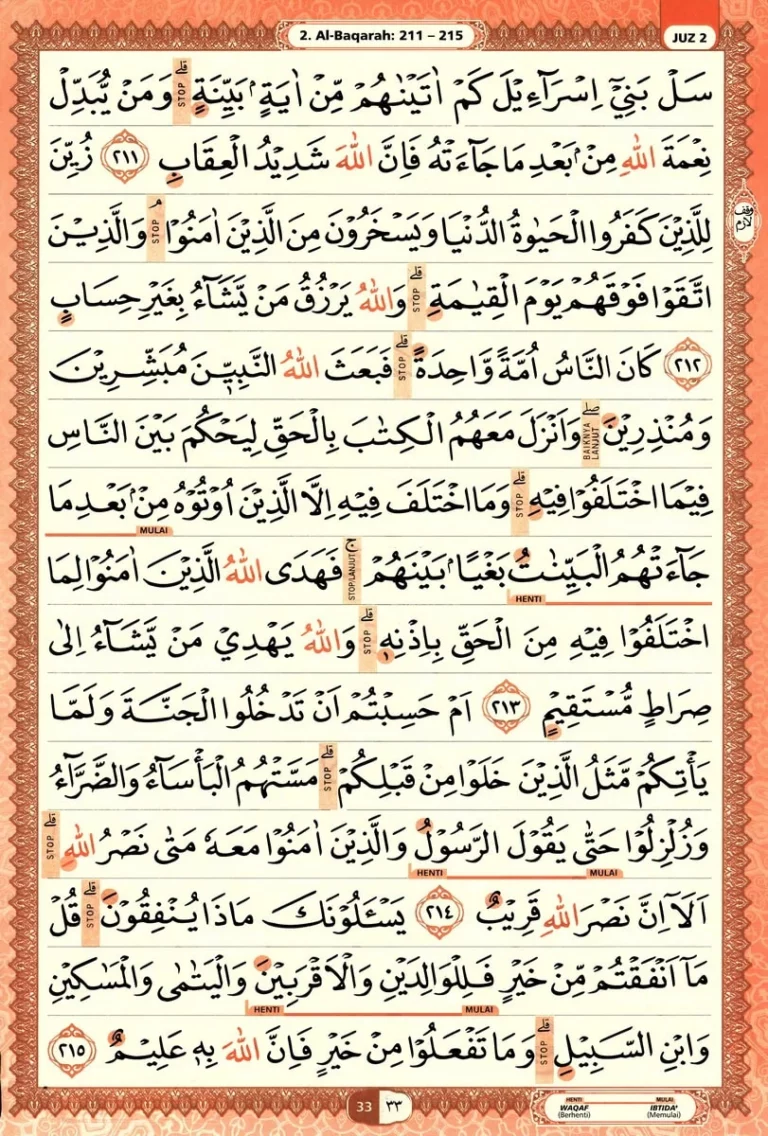 2. Al-Baqarah: 211 – 215
JUZ 2
سَلْ بَنِيْٓ اِسْرَاۤءِيْلَ كَمْ اٰتَيْنٰهُمْ مِّنْ اٰيَةٍ ۢ بَيِّنَةٍ ۗ STOP وَمَنْ يُّبَدِّلْ
نِعْمَةَ اللّٰهِ مِنْۢ بَعْدِ مَا جَاۤءَتْهُ فَاِنَّ اللّٰهَ شَدِيْدُ الْعِقَابِ ٢١١ زُيِّنَ
لِلَّذِيْنَ كَفَرُوا الْحَيٰوةُ الدُّنْيَا وَيَسْخَرُوْنَ مِنَ الَّذِيْنَ اٰمَنُوْا ۘ STOP وَالَّذِيْنَ
وقف لازم
اتَّقَوْا فَوْقَهُمْ يَوْمَ الْقِيٰمَةِ ۗ STOP وَاللّٰهُ يَرْزُقُ مَنْ يَّشَاۤءُ بِغَيْرِ حِسَابٍ
٢١٢ كَانَ النَّاسُ اُمَّةً وَّاحِدَةً ۗ STOP فَبَعَثَ اللّٰهُ النَّبِيّٖنَ مُبَشِّرِيْنَ
وَمُنْذِرِيْنَ ۖ BAIKNYA LANJUT وَاَنْزَلَ مَعَهُمُ الْكِتٰبَ بِالْحَقِّ لِيَحْكُمَ بَيْنَ النَّاسِ
فِيْمَا اخْتَلَفُوْا فِيْهِ ۗ STOP وَمَا اخْتَلَفَ فِيْهِ اِلَّا الَّذِيْنَ اُوْتُوْهُ مِنْۢ بَعْدِ مَا
MULAI
جَاۤءَتْهُمُ الْبَيِّنٰتُ بَغْيًا ۢ بَيْنَهُمْ ۚ STOP/LANJUT فَهَدَى اللّٰهُ الَّذِيْنَ اٰمَنُوْا لِمَا
HENTI
اخْتَلَفُوْا فِيْهِ مِنَ الْحَقِّ بِاِذْنِهٖ ۗ STOP وَاللّٰهُ يَهْدِيْ مَنْ يَّشَاۤءُ اِلٰى
صِرَاطٍ مُّسْتَقِيْمٍ ٢١٣ اَمْ حَسِبْتُمْ اَنْ تَدْخُلُوا الْجَنَّةَ وَلَمَّا
يَأْتِكُمْ مَّثَلُ الَّذِيْنَ خَلَوْا مِنْ قَبْلِكُمْ ۗ STOP مَسَّتْهُمُ الْبَأْسَاۤءُ وَالضَّرَّاۤءُ
وَزُلْزِلُوْا حَتّٰى يَقُوْلَ الرَّسُوْلُ وَالَّذِيْنَ اٰمَنُوْا مَعَهٗ مَتٰى نَصْرُ اللّٰهِ ۗ STOP
HENTI MULAI
اَلَآ اِنَّ نَصْرَ اللّٰهِ قَرِيْبٌ ٢١٤ يَسْـَٔلُوْنَكَ مَاذَا يُنْفِقُوْنَ ۗ STOP قُلْ
مَآ اَنْفَقْتُمْ مِّنْ خَيْرٍ فَلِلْوَالِدَيْنِ وَالْاَقْرَبِيْنَ وَالْيَتٰمٰى وَالْمَسٰكِيْنِ
HENTI MULAI
وَابْنِ السَّبِيْلِ ۗ STOP وَمَا تَفْعَلُوْا مِنْ خَيْرٍ فَاِنَّ اللّٰهَ بِهٖ عَلِيْمٌ ٢١٥
33 ٣٣
HENTI MULAI
WAQAF IBTIDA'
(Berhenti) (Memulai)